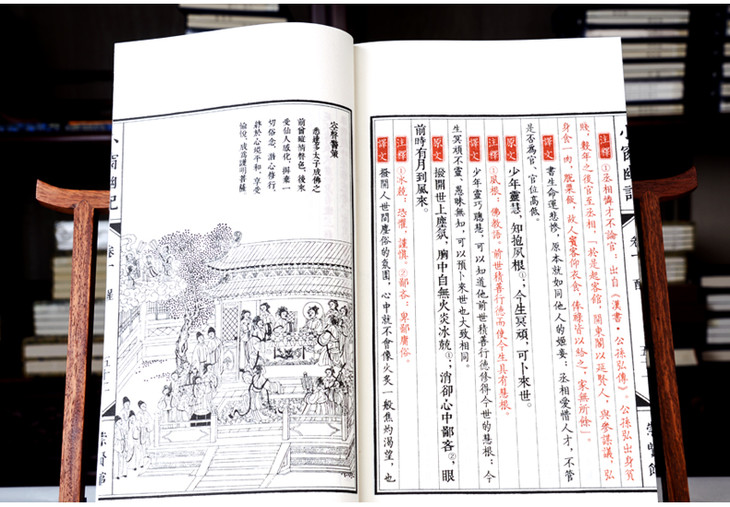 小窗幽記
卷一 醒
五
崇賢館
注釋 ①丞相憐才不論官:出自《漢書·公孫弘傳》。公孫弘出身貧
賤,數年之後官至丞相,「於是起客館,開東閣以延賢人,與參謀議。弘
身食一肉,脫粟飯,故人賓客仰衣食,俸祿皆以給之,家無所餘」。
譯文 書生命運悲慘,原本就如同他人的姬妾;丞相愛惜人才,不管
是否為官、官位高低。
原文 少年靈慧,知抱夙根①;今生冥頑,可卜來世。
注釋 ①夙根:佛教語。前世積善行德而使今生具有慧根。
譯文 少年靈巧聰慧,可以知道他前世積善行德修得今世的慧根;今
生冥頑不靈、愚昧無知,可以預卜來世也大致相同。
原文 撥開世上塵氛,胸中自無火炎冰兢①;消卻心中鄙吝②,眼
前時有月到風來。
注釋 ①冰兢:恐懼,謹慎。②鄙吝:卑鄙庸俗。
譯文 撥開人世間塵俗的氛圍,心中就不會像火炙一般焦灼渴望,也
警策
悉達多太子成佛之
前曾癡情聲色,後來
受仙人感化,摒棄一
切俗念,潛心修行,
終於心境平和,享受
愉悅,成為護明菩薩
小窗幽記
卷一 醒
五
崇賢館